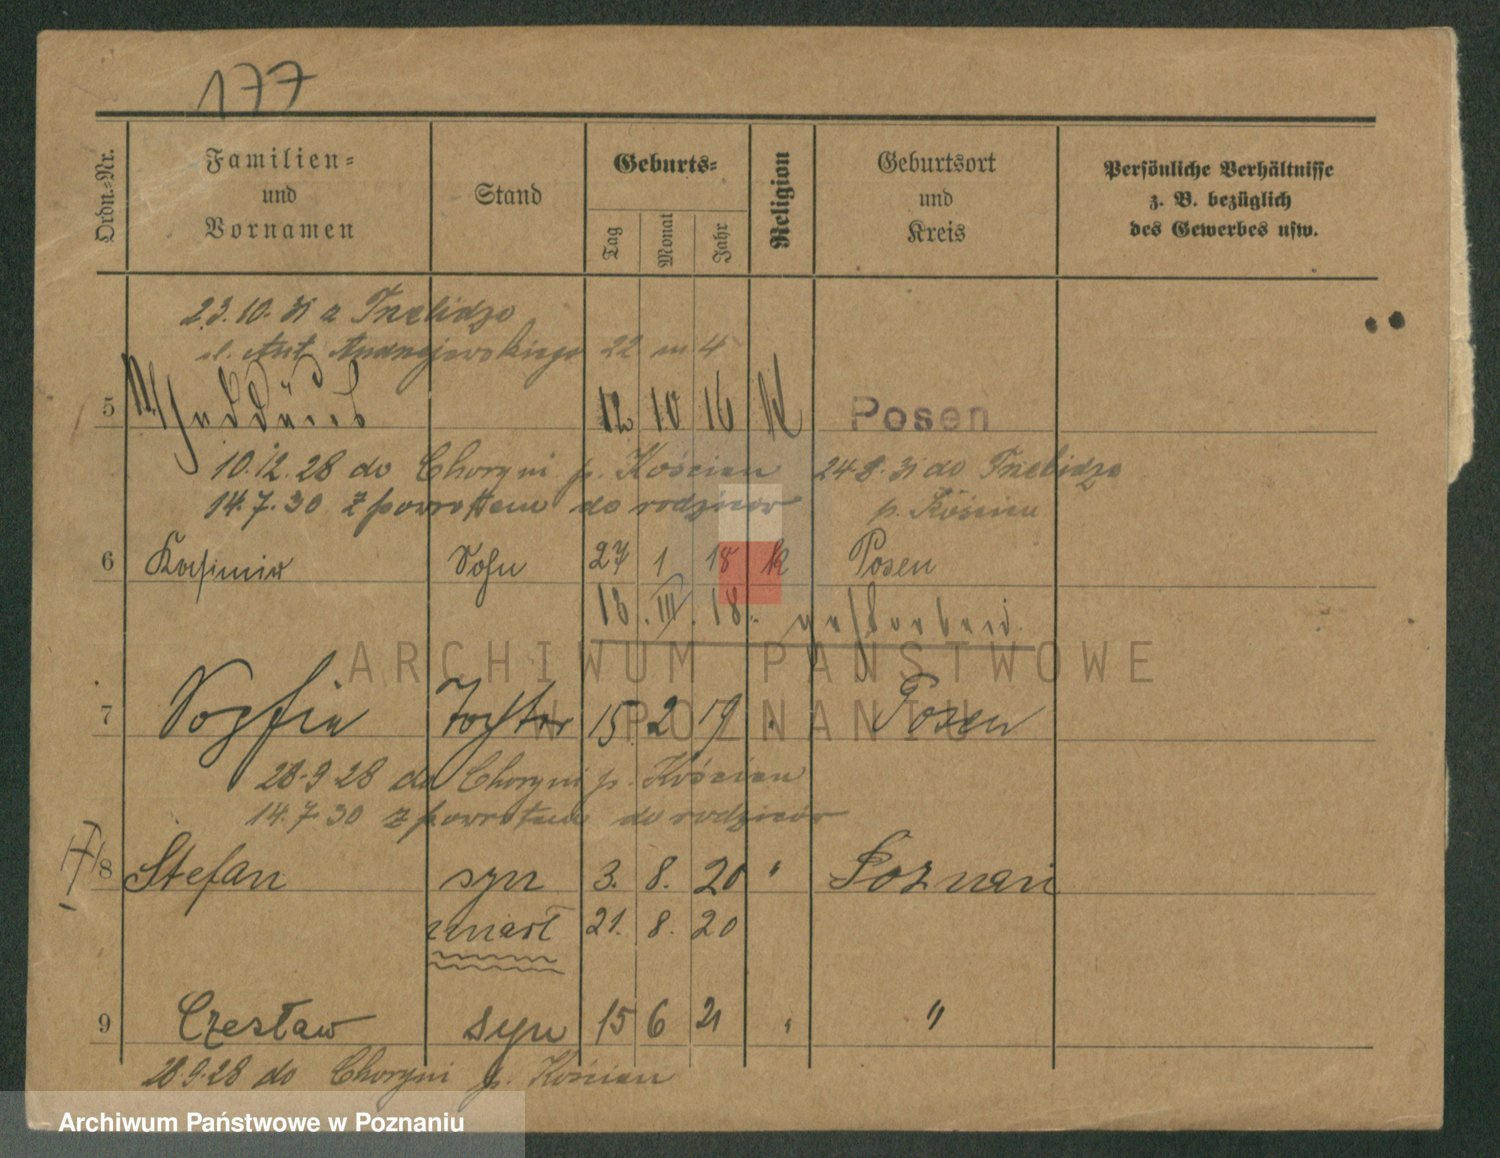 177
Ordn.-Nr.
Familien-
und
Vornamen
Stand
Geburts-
Tag
Monat
Jahr
Religion
Geburtsort
und
Kreis
Persönliche Verhältnisse
z. B. bezüglich
des Gewerbes usw.
23.10.31 z
Ant. Andrzejewskiego 22 m 4
5 12 10 16 K Posen
10.12.28 do Choryni p. Kościan 24.8.31 do
14.7.30 z powrotem do rodziców p. Kościan
6 Kasimir Sohn 27 1 18 k Posen
13. III. 18. verstorben
7 Sophie Tochter 15. 2 19 " Posen
28.9.28 do Choryni p. Kościan
14.7.30 z powrotem do rodziców
8 Stefan syn 3. 8. 20 " Poznań
umarł 21. 8. 20
9 Czesław syn 15 6 21 " "
28.9.28 do Choryni p. Kościan
ARCHIWUM PAŃSTWOWE
W POZNANIU
Archiwum Państwowe w Poznaniu